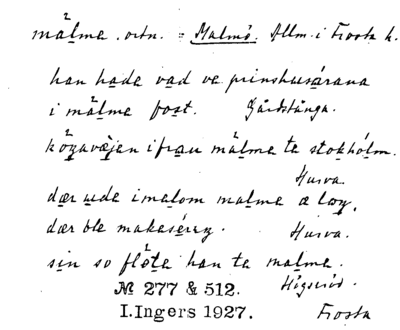 målme. ortn. = Malmö. Allm. i Frosta h.
han hade vad ve prinshusårana
i målme fost. Gårdstånga.
kögavæjen ifrau målme te stokhólm.
Hurva.
dær ude imalom malme a loŋ.
dær ble makaséreŋ. Hurva.
sin so fløta han ta malme.
Högseröd.
№ 277 & 512.
I.Ingers 1927. Frosta